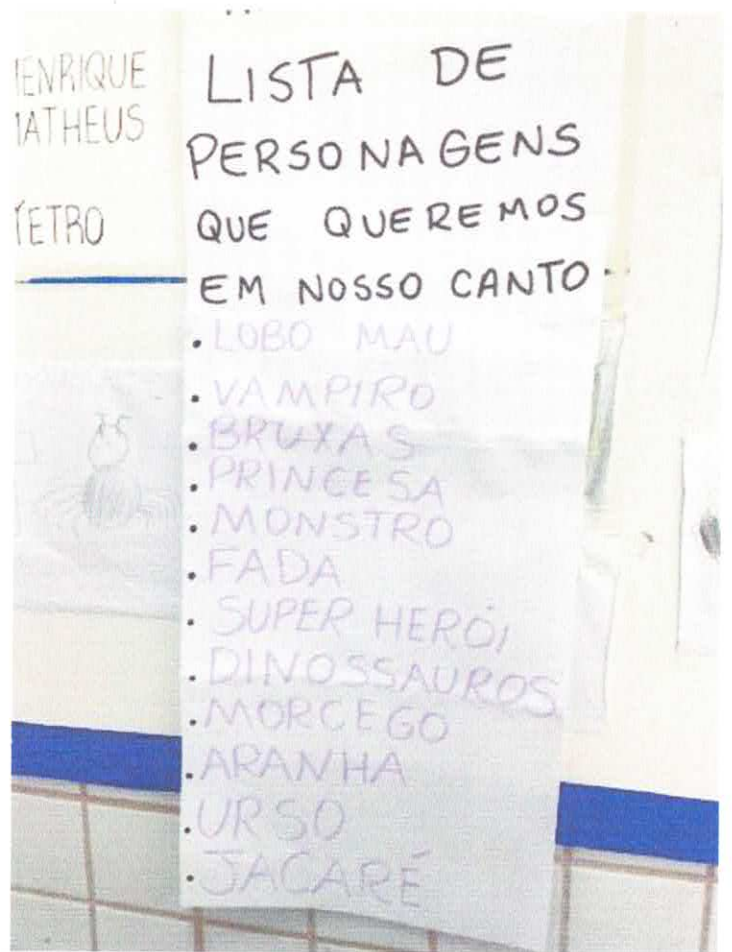 HENRIQUE
MATHEUS
LISTA DE
PERSONAGENS
QUE QUEREMOS
EM NOSSO CANTO
• LOBO MAU
• VAMPIRO
• BRUXAS
• PRINCESA
• MONSTRO
• FADA
• SUPER HERÓI
• DINOSSAUROS
• MORCEGO
• ARANHA
• URSO
• JACARÉ